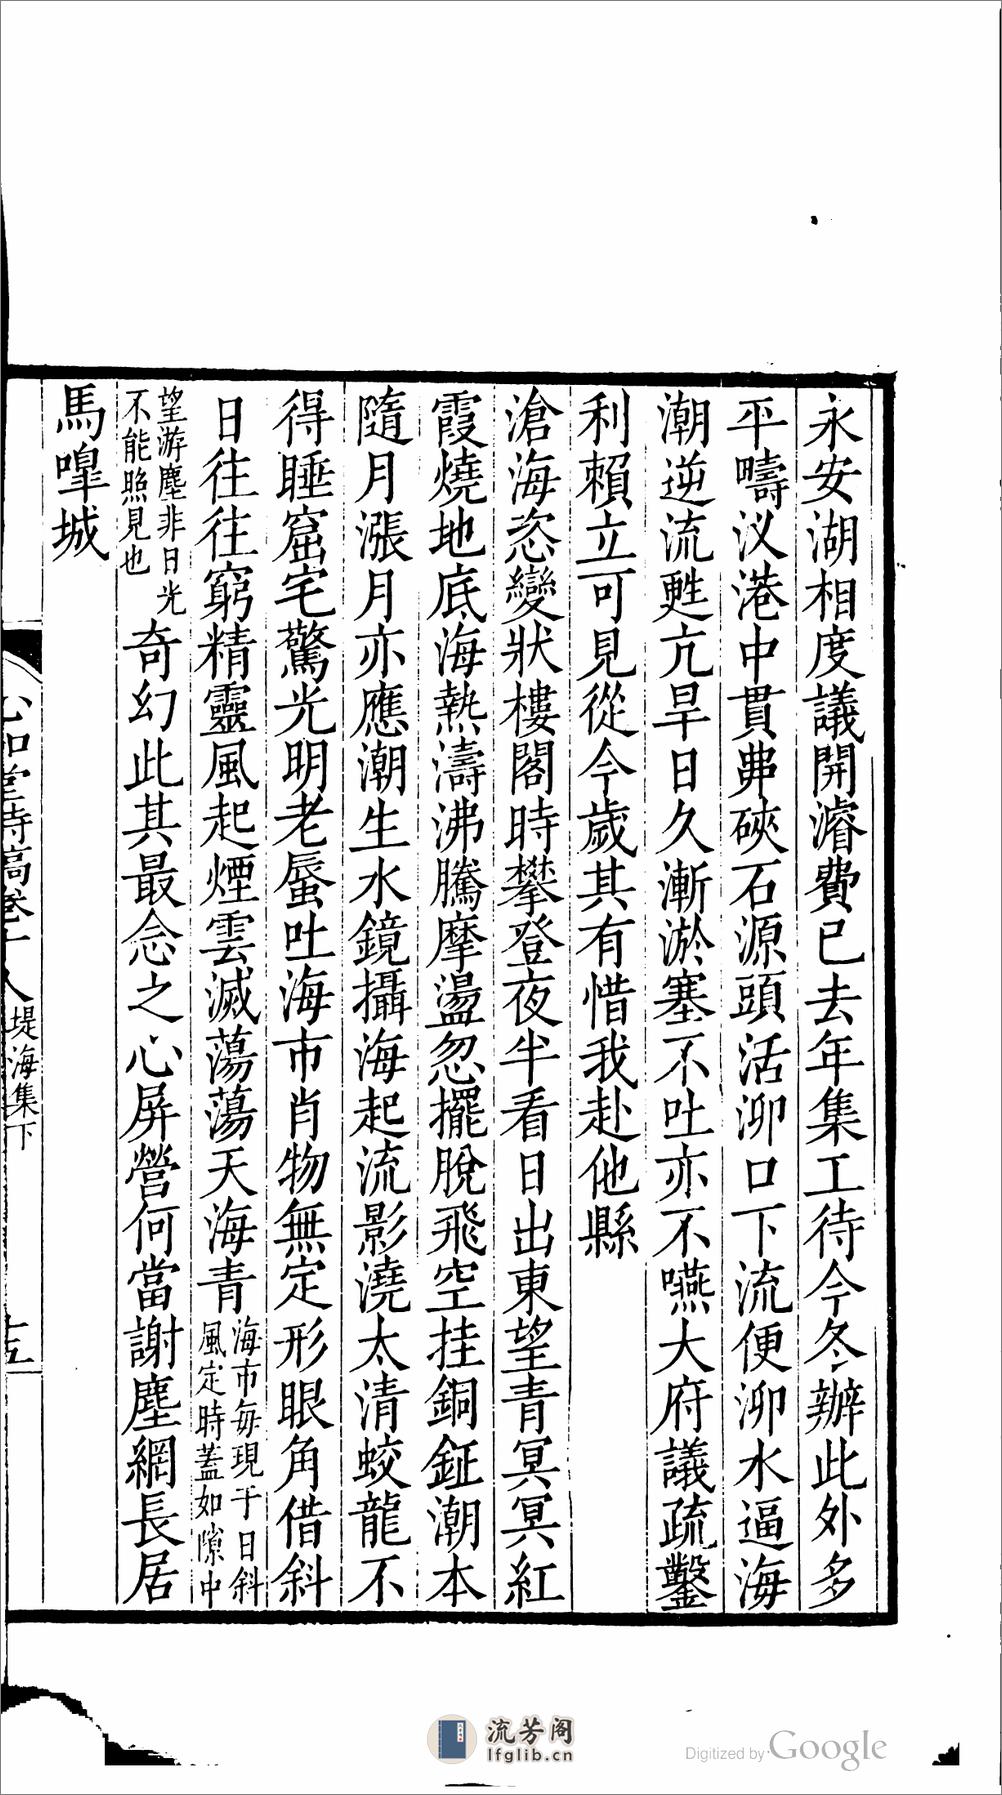 永安湖相度議開濬費已去年集工待今冬辦此外多
平疇汊港中貫弗硤石源頭活泖口下流便泖水逼海
潮逆流甦亢旱日久漸淤塞不吐亦不嚥大府議疏鑿
利賴立可見從今歲其有惜我赴他縣
滄海恣變狀樓閣時攀登夜半看日出東望青冥冥紅
霞燒地底海熱濤沸騰摩盪忽擺脫飛空挂銅鉦潮本
隨月漲月亦應潮生水鏡攝海起流影澆太清蛟龍不
得睡窟宅驚光明老蜃吐海市肖物無定形眼角借斜
日往往窮精靈風起煙雲滅蕩蕩天海青海市每現于日斜
風定時蓋如隙中
望游塵非日光
不能照見也奇幻此其最念之心屏營何當謝塵網長居
馬嘷城
心知堂詩稿卷十八
堤海集下
十五
流芳阁
lfglib.cn
Digitized by Google